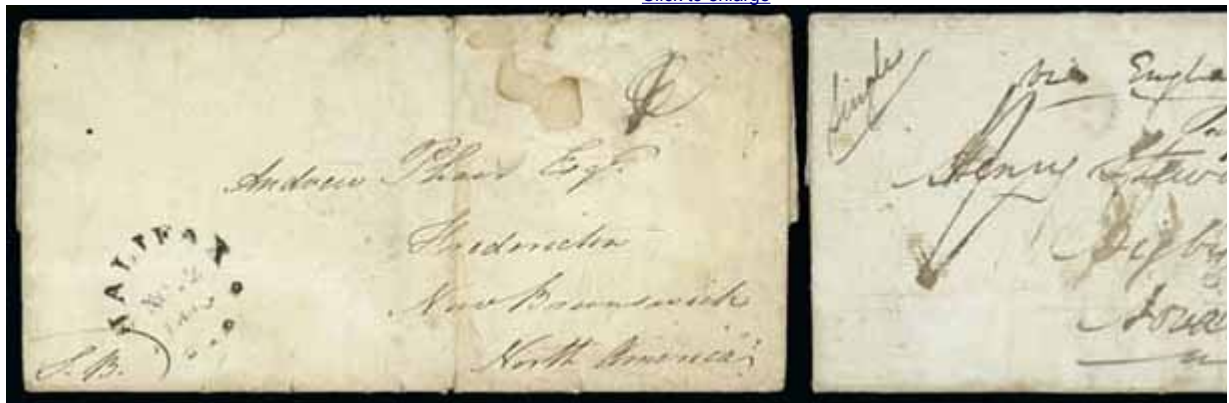 Click to enlarge
Andrew Phair Esqr.
Fredericton
New Brunswick
North America
HALIFAX
S.B.
Single
via Engla
Henry Stew
Digby
Nova